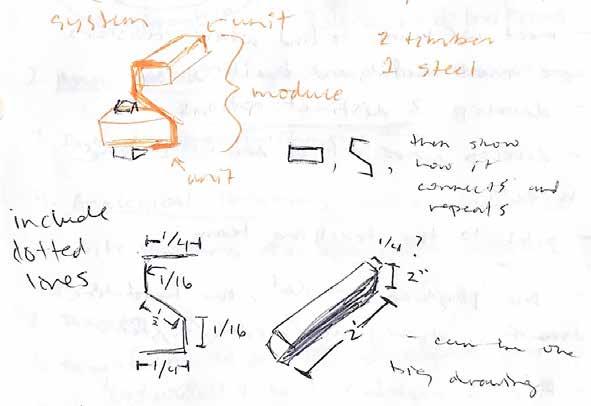 system
unit
2 timber
1 steel
module
unit
then show
how it
connects and
repeats
include
dotted
lines
1/4
1/16
1/2
1/16
1/4
1/4 ?
2"
2"
- can be one
big drawing